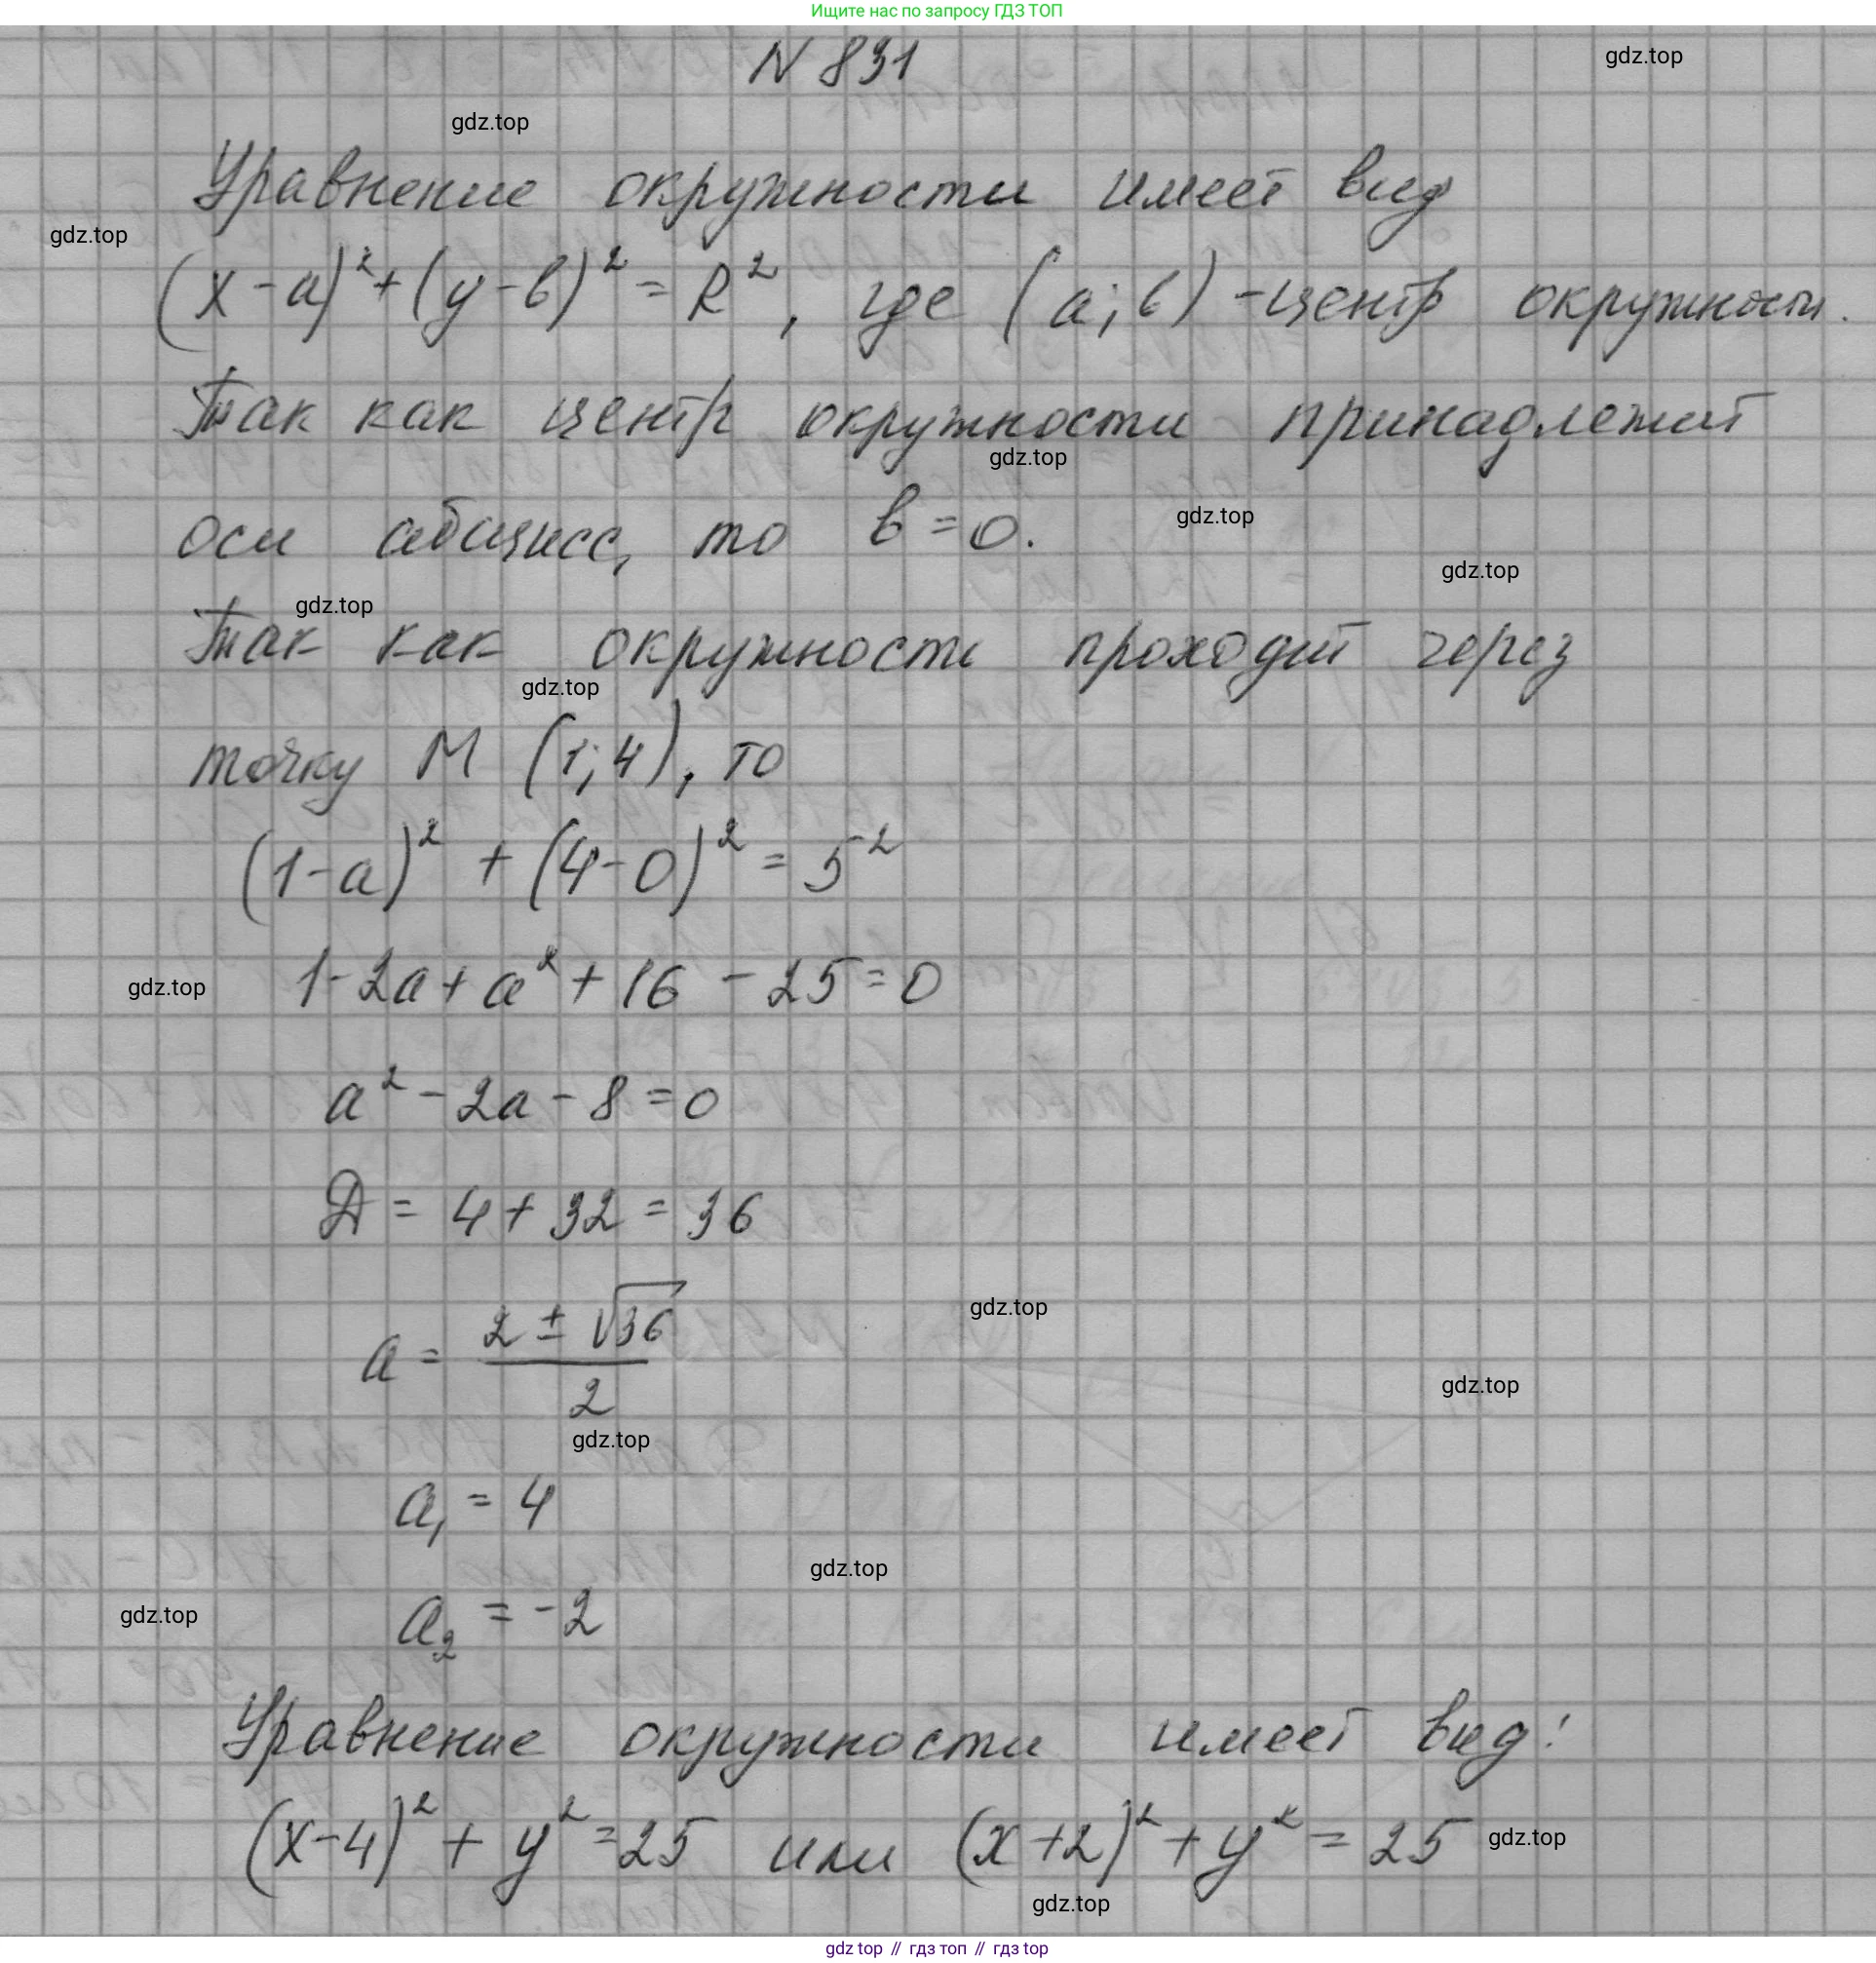 Ищите нас по запросу ГДЗ ТОП
N 831
gdz.top
gdz.top
Уравнение окружности имеет вид
gdz.top
(x-a)²+(y-b)²=R², где (a;b)-центр окружности.
Так как центр окружности принадлежит
gdz.top
оси абсцисс, то b=0.
gdz.top
gdz.top
gdz.top
Так как окружность проходит через
gdz.top
точку M (1;4), то
(1-a)² + (4-0)² = 5²
gdz.top
1-2a+a²+16-25=0
a²-2a-8=0
D = 4+32=36
gdz.top
a = (2±√36)/2
gdz.top
gdz.top
a₁ = 4
gdz.top
gdz.top
a₂ = -2
Уравнение окружности имеет вид:
(x-4)²+y²=25 или (x+2)²+y²=25
gdz.top
gdz.top
gdz top // гдз топ // гдз top